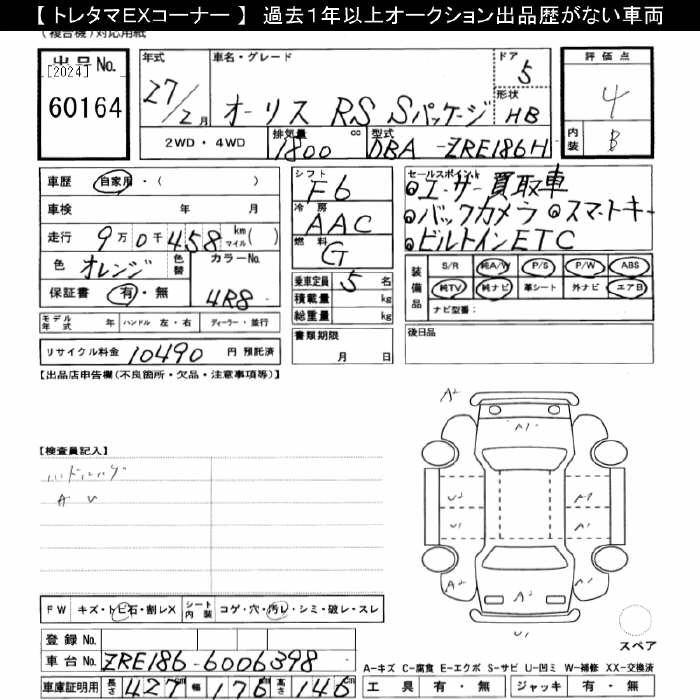 【トレタマEXコーナー】 過去1年以上オークション出品歴がない車両
(複合機)対応用紙
出品No.
[2024]
60164
年式
27/2月
車名・グレード
オーリス RS Sパッケージ
ドア
5
形状
HB
評価点
4
内装
B
2WD・4WD
排気量
1800 cc
型式
DBA-ZRE186H
車歴 自家用・( )
車検 年 月
走行 9万0千458 km マイル( )
色 オレンジ
色替
カラーNo.
4R8
保証書 有・無
モデル年式 年
ハンドル 左・右
ディーラー・並行
リサイクル料金 10490 円 預託済
シフト
F6
冷房
AAC
燃料
G
乗車定員 5 名
積載量 kg
総重量 kg
書類期限
月 日
セールスポイント
ユーザー買取車
バックカメラ スマートキー
ビルトインETC
装備品
S/R 純A/W P/S P/W ABS
純TV 純ナビ 革シート 外ナビ エアB
ナビ型番:
後日品
【出品店申告欄(不良箇所・欠品・注意事項等)】
【検査員記入】
A U
A2
A1
U2
A1
U1
A1
A2
A2
A1
U1
スペア
FW キズ・トビ石・割レX
シート内装 コゲ・穴・汚レ・シミ・破レ・スレ
登録No.
車台No. ZRE186-6006398
車庫証明用 長さ 427cm 幅 176cm 高さ 146cm
A-キズ C-腐食 E-エクボ S-サビ U-凹ミ W-補修 XX-交換済
工具 有・無
ジャッキ 有・無